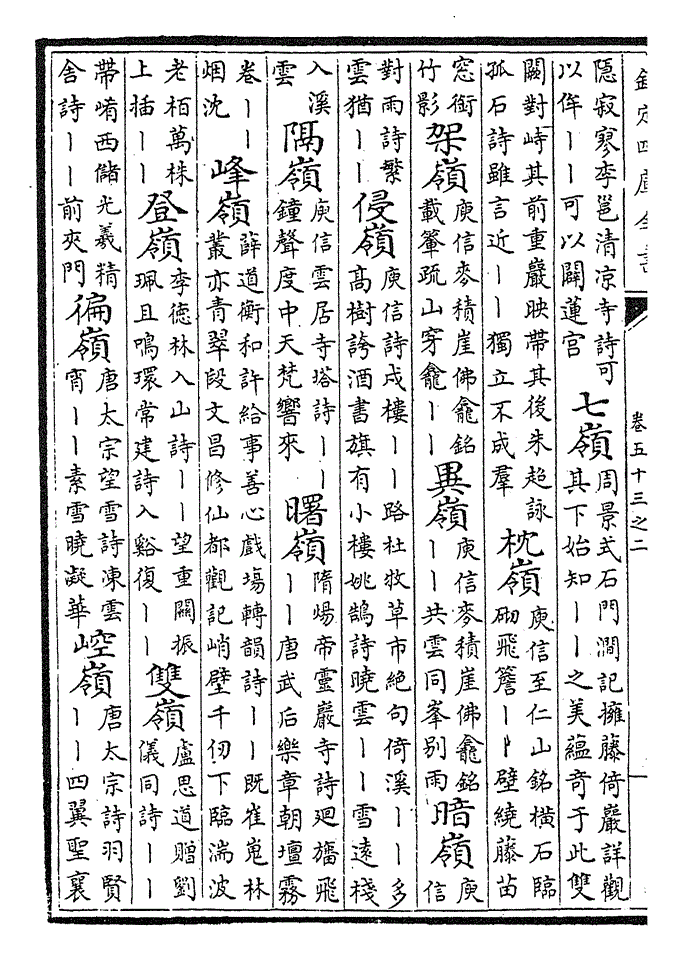 欽定四庫全書
卷五十三之二
隠寂寥李邕清凉寺詩可
以侔丨丨可以闢蓮宫
七嶺
周景式石門澗記擁藤倚巖詳觀
其下始知丨丨之美蘊奇于此雙
闕對峙其前重巖映帶其後朱超詠
孤石詩雖言近丨丨獨立不成羣
枕嶺
庾信至仁山銘横石臨
砌飛簷丨丨壁繞藤苗
窓銜
竹影
架嶺
庾信麥積崖佛龕銘
載輦疏山穿龕丨丨
異嶺
庾信麥積崖佛龕銘
丨丨共雲同峯别雨
暗嶺
庾
信
對雨詩繁
雲猶丨丨
侵嶺
庾信詩戍樓丨丨路杜牧草市絶句倚溪丨丨多
髙樹誇酒書旗有小樓姚鵠詩曉雲丨丨雪遠棧
入溪
雲
隔嶺
庾信雲居寺塔詩丨丨
鐘聲度中天梵響來
曙嶺
隋煬帝靈巖寺詩廻旛飛
丨丨唐武后樂章朝壇霧
卷丨丨
烟沈
峰嶺
薛道衡和許給事善心戲場轉韻詩丨丨既崔嵬林
叢亦青翠段文昌修仙都觀記峭壁千仞下臨湍波
老栢萬株
上插丨丨
登嶺
李徳林入山詩丨丨望重關振
珮且鳴環常建詩入谿復丨丨
雙嶺
盧思道贈劉
儀同詩丨丨
帶崤西儲光羲精
舍詩丨丨前夾門
徧嶺
唐太宗望雪詩凍雲
宵丨丨素雪曉凝華
崆嶺
唐太宗詩羽賢
丨丨四翼聖襄